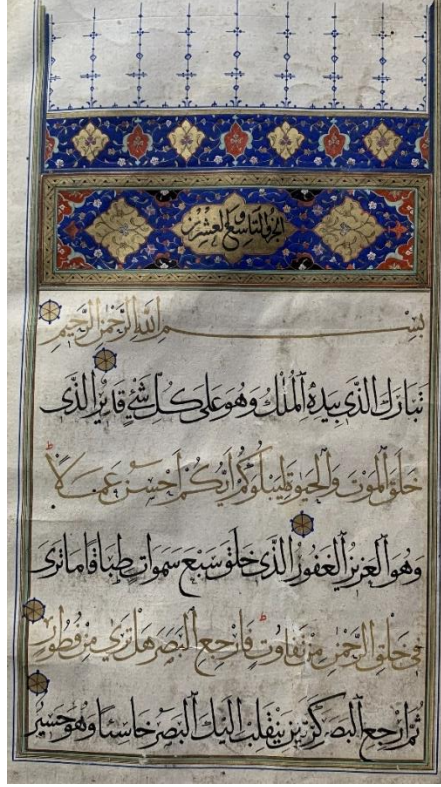 الجزو التاسع والعشرین
بسم الله الرحمن الرحيم
تبارك الذى بيده الملك وهو على كل شئ قدير الذى
خلق الموت والحيوة ليبلوكم ايكم احسن عملا
وهو العزيز الغفور الذى خلق سبع سموات طباقا ما ترى
فى خلق الرحمن من تفاوت فارجع البصر هل ترى من فطور
ثم ارجع البصر كرتين ينقلب اليك البصر خاسئا وهو حسير